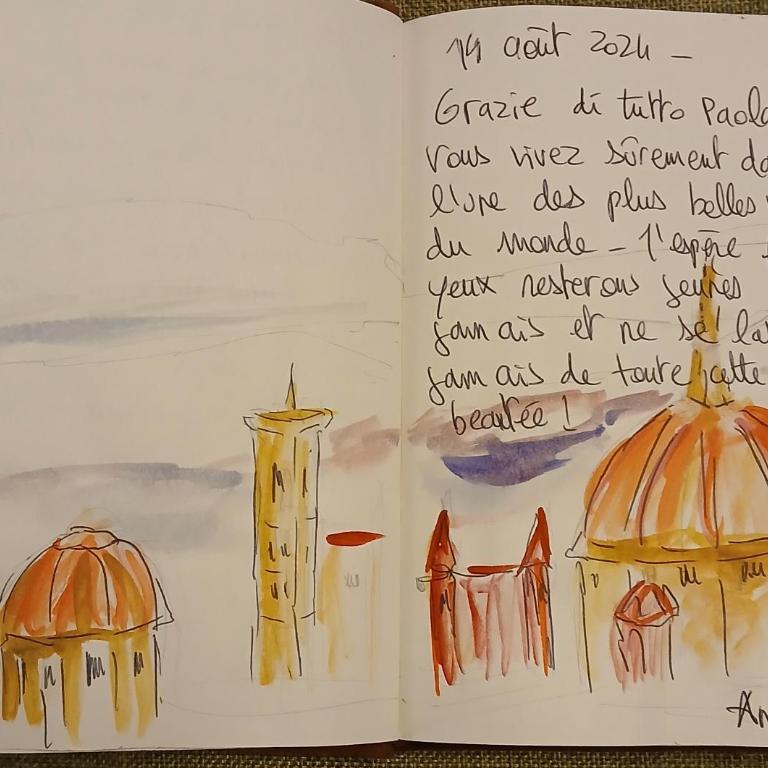 14 août 2024 —
Grazie di tutto Paola
Vous vivez sûrement da
l'une des plus belles
du monde — J'espère
yeux resterons jeunes
jamais et ne se la
jamais de toute cette
beautée !
An